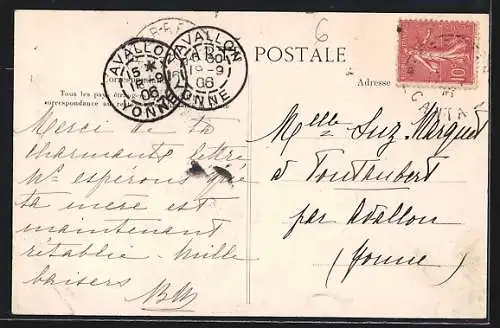 6
POSTALE
AVALLON
YONNE
15 *
18-9
06
AVALLON
YONNE
19-9
06
10
Correspon
Adresse
Tous les pays étrang
correspondance au re
CANTAL
Merci de ta
charmante lettre
Ns espérons que
ta mère est
maintenant
rétablie. Mille
baisers
Melle Suz. Marquet
à
par Avallon
(Yonne)